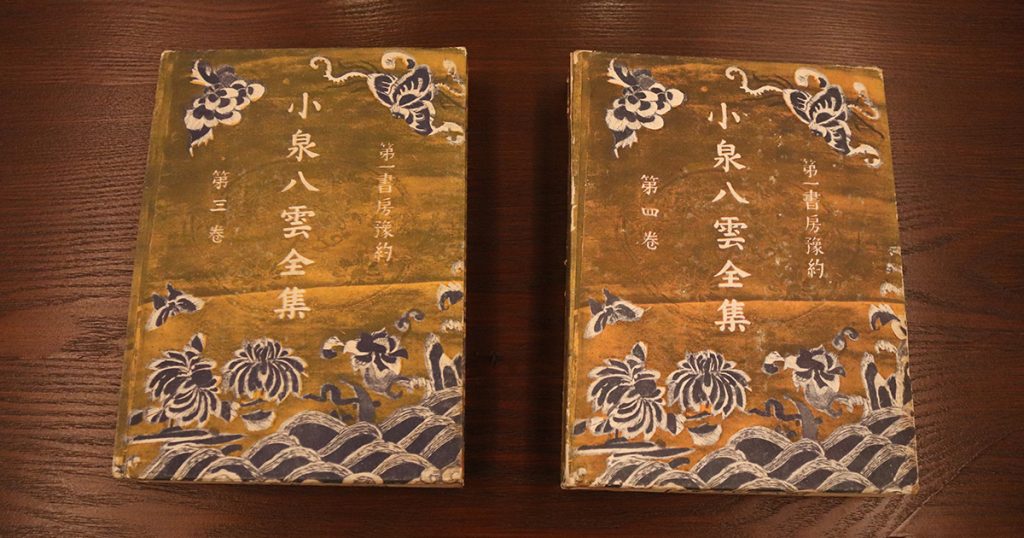 第一書房豫約
小泉八雲全集
第三巻
第一書房豫約
小泉八雲全集
第四巻